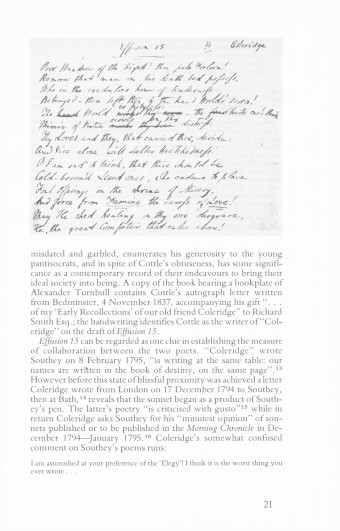 Effusion 15 Coleridge
Poor Wanderer of the Night! thou pale Forlorn!
Remove that man in his death bed possess,
Who in the credulous hour of tenderness
Betrayed - then left thee to the hard World's scorn!
The World
Mimic of Virtue
Thy loves and they, that envied thee, deride
And Vice alone will shelter Wretchedness!
O I am sad to think, that there should be
Cold-bosom'd Lewd ones, who endure to place
Foul Offerings on the shrine of Misery,
And force from Famine the caress of Love!
May He shed healing on thy sore disgrace,
He, the great Comforter that rules above!
misdated and garbled, enumerates his generosity to the young
pantisocrats, and in spite of Cottle's obtuseness, has some signifi-
cance as a contemporary record of their endeavours to bring their
ideal society into being. A copy of the book bearing a bookplate of
Alexander Turnbull contains Cottle's autograph letter written
from Bedminster, 4 November 1837, accompanying his gift ". . .
of my 'Early Recollections' of our old friend Coleridge" to Richard
Smith Esq.; the handwriting identifies Cottle as the writer of "Col-
eridge" on the draft of Effusion 15.
Effusion 15 can be regarded as one clue in establishing the measure
of collaboration between the two poets. "Coleridge" wrote
Southey on 8 February 1795, "is writing at the same table: our
names are written in the book of destiny, on the same page".¹³
However before this state of blissful proximity was achieved a letter
Coleridge wrote from London on 17 December 1794 to Southey,
then at Bath,¹⁴ reveals that the sonnet began as a product of South-
ey's pen. The latter's poetry "is criticised with gusto"¹⁵ while in
return Coleridge asks Southey for his "minutest opinion" of son-
nets published or to be published in the Morning Chronicle in De-
cember 1794—January 1795.¹⁶ Coleridge's somewhat confused
comment on Southey's poems runs:
I am astonished at your preference of the 'Elegy'! I think it is the worst thing you
ever wrote . . .
21